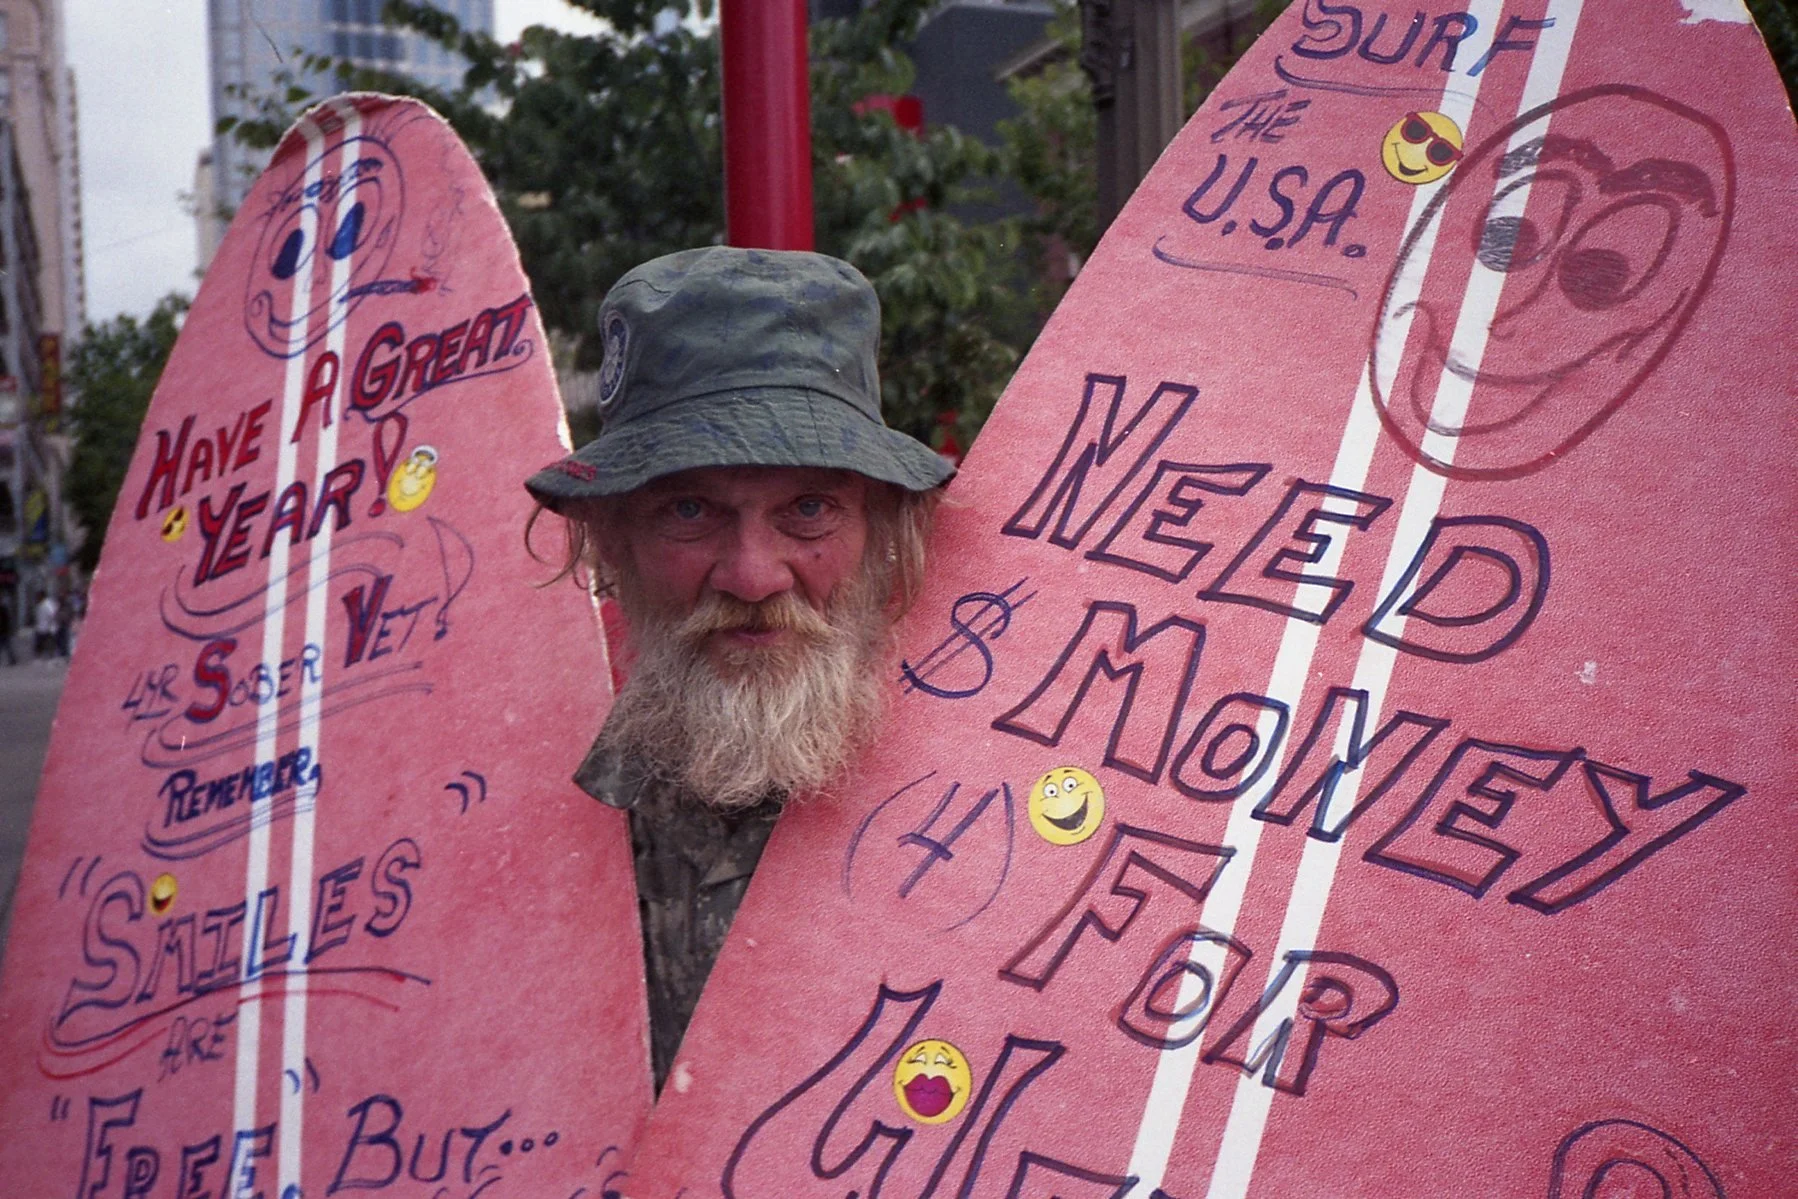 HAVE A GREAT
YEAR!
4YR SOBER VET!
REMEMBER,
"SMILES"
ARE
"FREE." BUT...
SURF
THE
U.S.A.
NEED
$ MONEY
(4) FOR